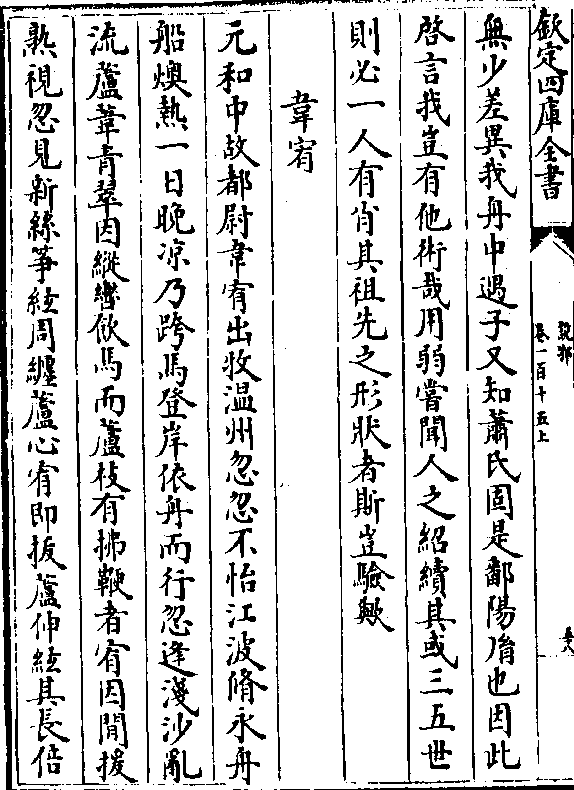 欽定四庫全書
說郛
卷一百十五上
無少差異我舟中遇子又知蕭氏固是鄱陽𦙍也因此
啓言我豈有他術哉用弱嘗聞人之紹續其或三五世
則必一人有肖其祖先之形狀者斯豈驗歟
韋宥
元和中故都尉韋宥出牧温州忽忽不怡江波脩永舟
船燠熱一日晚凉乃跨馬登岸依舟而行忽逢淺沙亂
流蘆葦青翠因縱轡飲馬而蘆枝有拂鞭者宥因閒援
熟視忽見新絲筝絃周纏蘆心宥即拔蘆伸絃其長倍